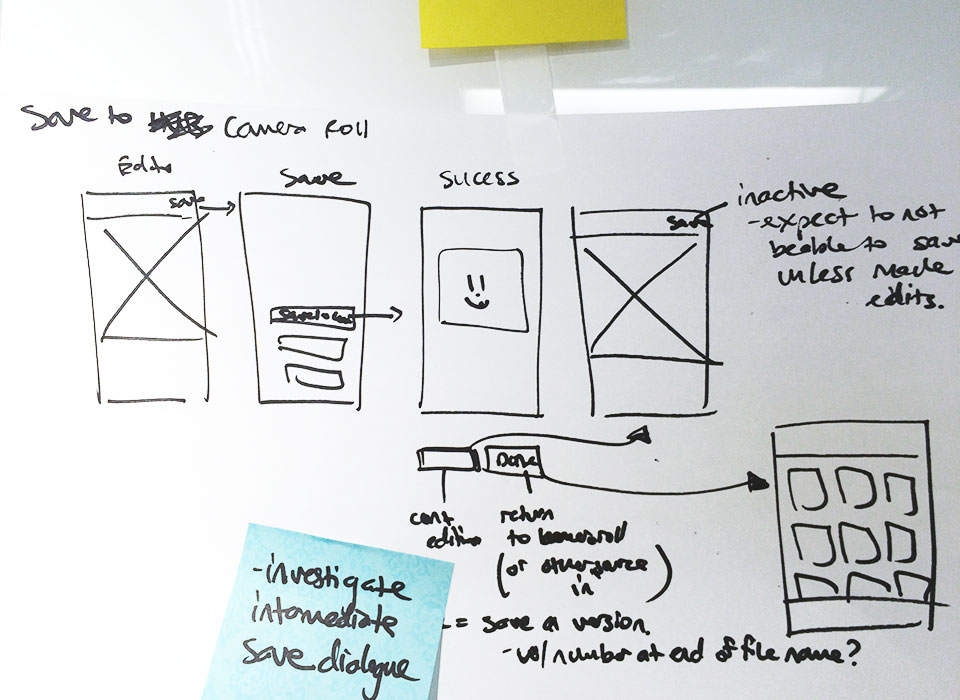 Save to Camera Roll
Editor
Save
Sucess
save
Save
inactive
-expect to not
be able to save
unless made
edits.
Done
cont
editing
return
to
(or
in)
= save a version
- w/ number at end of file name?
-investigate
intomediate
Save dialogue